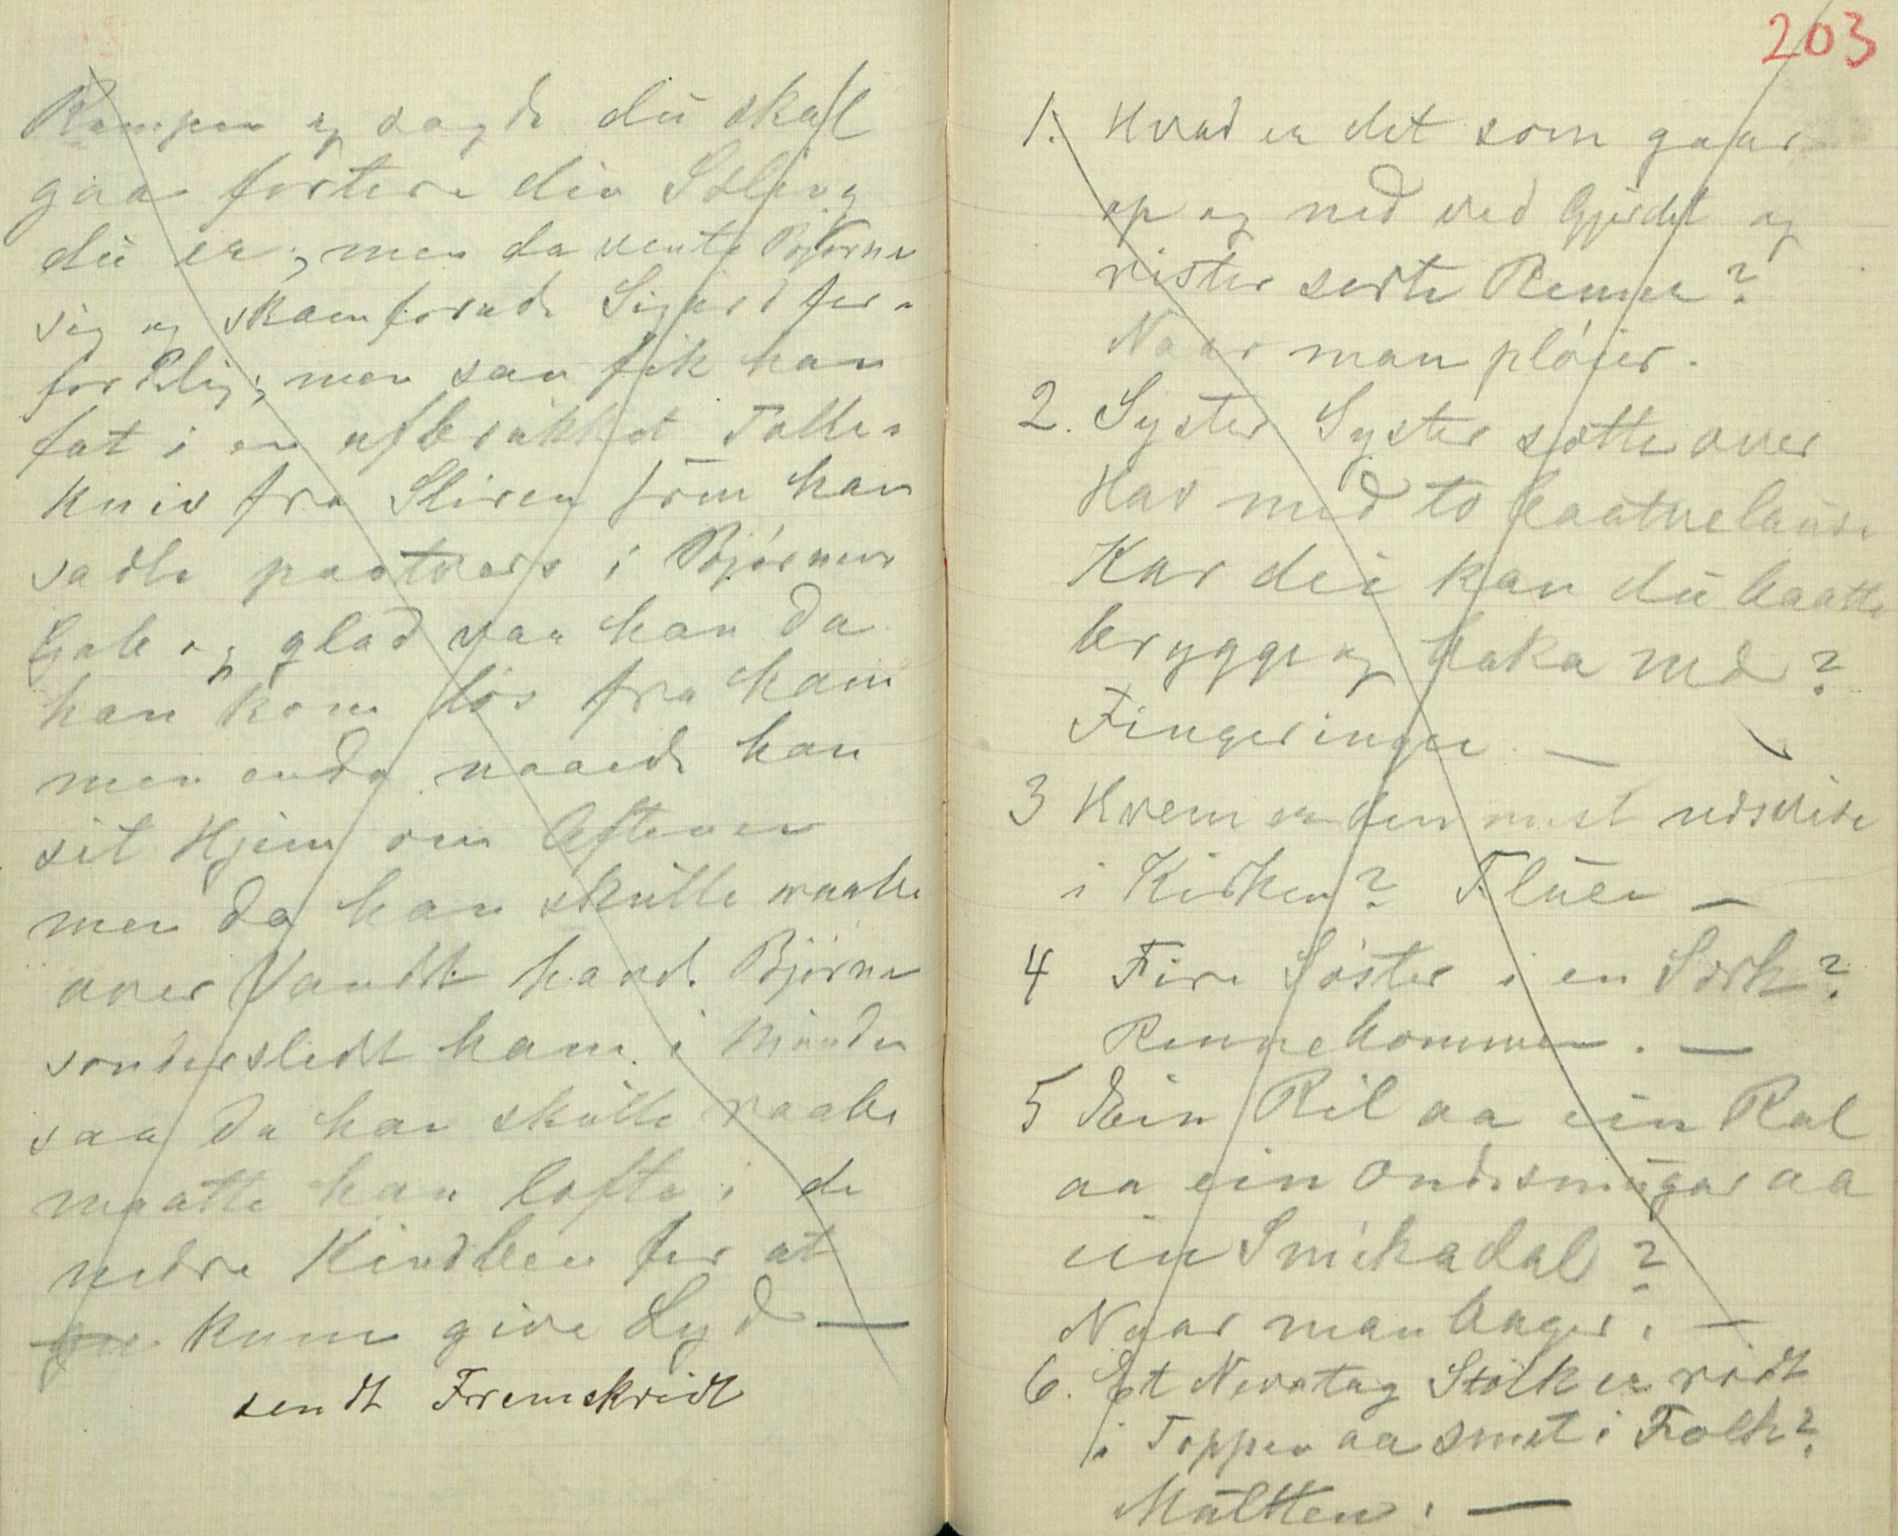 Rumpen og sagde du skal
gaa fortere din Sløling
du er; men da vente Bjørne
sig og skamferede Sigurd for-
fordelig; men saa fik han
fat i en afbrukket Tolle-
kniv fra Sliren som han
satte paatvers i Bjørnens
Gab og glad var han da
han kom løs fra ham
men enda naaede han
sit Hjem om Aftenen
men da han skulle raabe
over Vandet havde Bjørne
sønderslidt ham i Munden
saa da han skulle raabe
maatte han løfte i de
nedre Kindben for at
kunne give Lyd —
sendt Fremskridt
203
1. Hvad er det som gaar
op og ned ved Gjerdet og
rister sorte Renner?
Naar man pløier.
2. Syster Syster sætte over
Hav med to baatnelause
Kar dei kan du baatte
brygge og baka med?
Fingeringen. —
3 Hvem er den mest udsvidne
i Kirken? Fluen —
4 Fire Søster i en Særk?
Rennebommen. —
5 Ein Ril aa ein Ral
aa ein Ondesmugar aa
ein Snikadal?
Naar man bager. —
6. Et Nevatag Stolk er rødt
i Toppen aa smet i Folk?
Multten. —